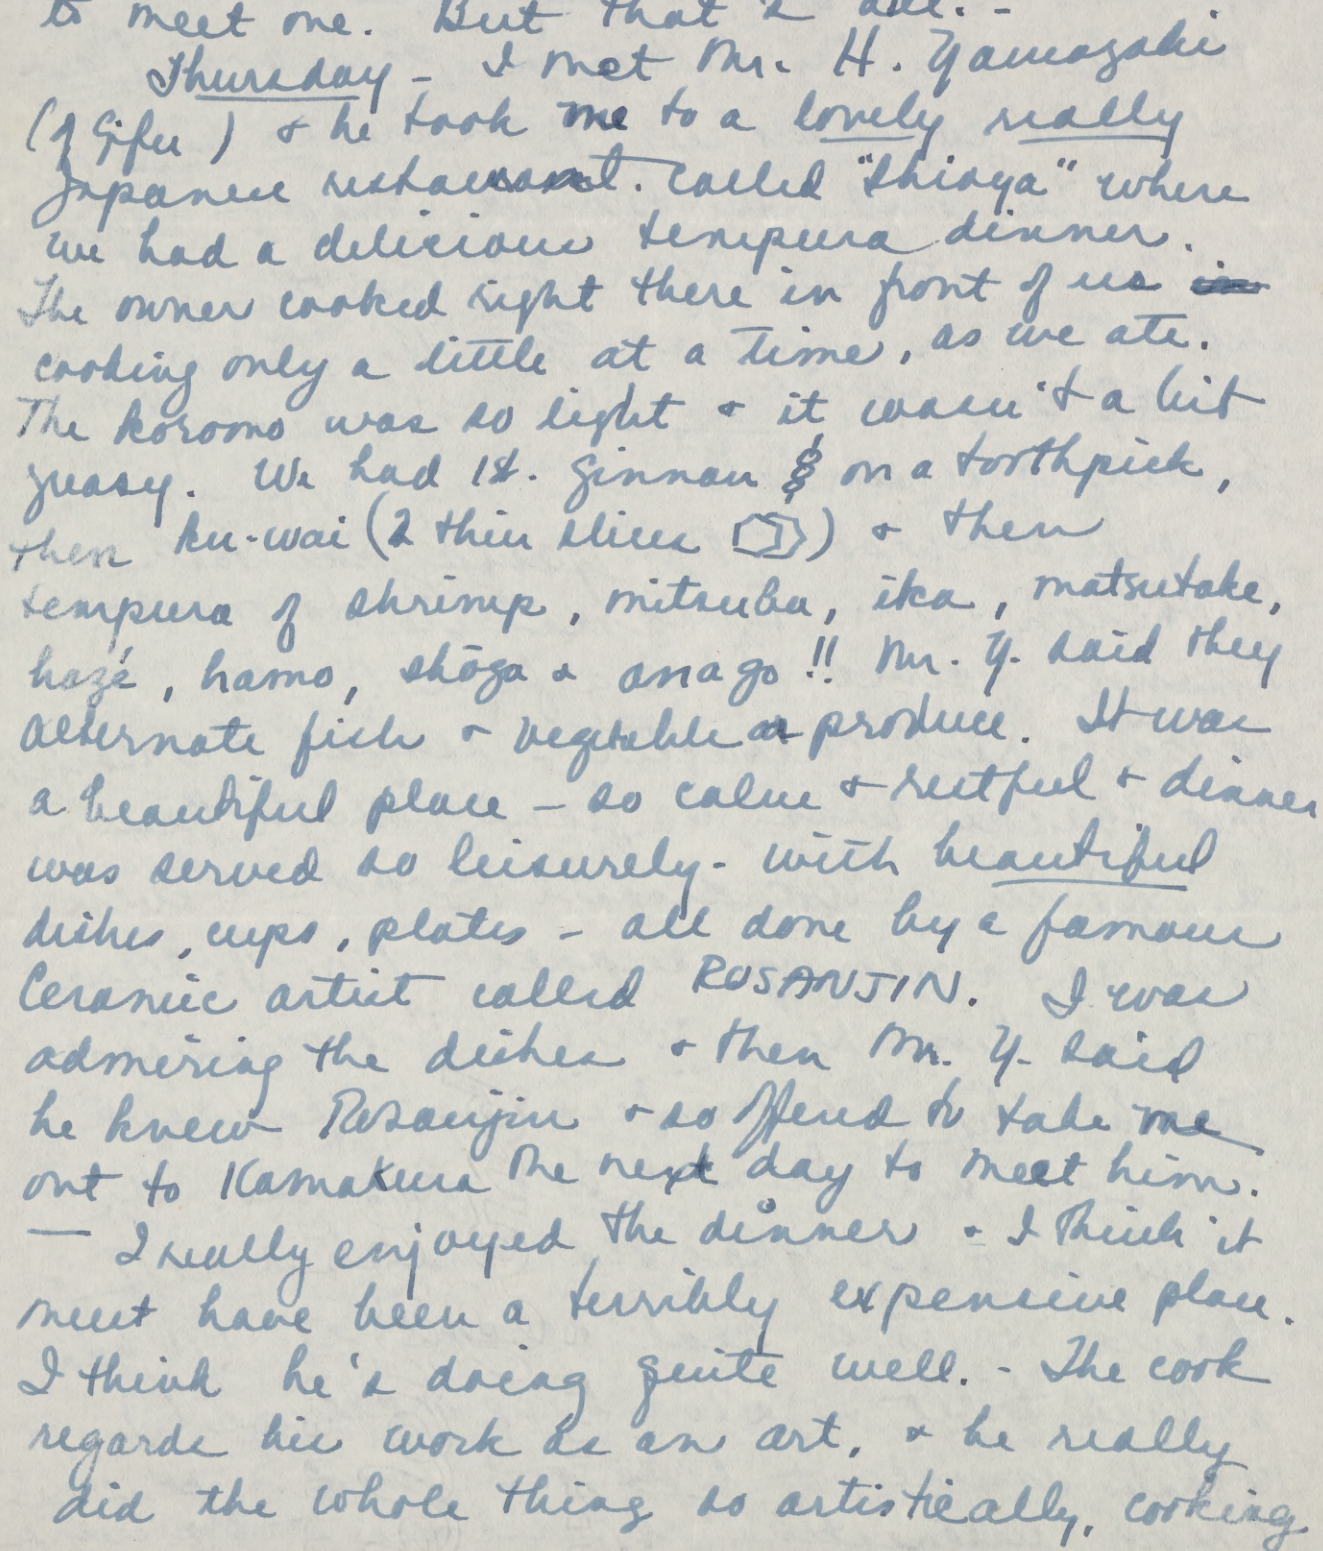 to meet one. But that's all. -
Thursday - I met Mr. H. Yamazaki
(of Gifu) & he took me to a lovely really
Japanese restaurant. called "Shioya" where
we had a delicious tempura dinner.
The owner cooked right there in front of us in
cooking only a little at a time, as we ate.
The koromo was so light & it wasn't a bit
greasy. We had 1st. ginnan on a toothpick,
then ku-wai (2 thin slices) & then
tempura of shrimp, mitsuba, ika, matsutake,
hazé, hamo, shōga & anago!! Mr. Y. said they
alternate fish & vegetable produce. It was
a beautiful place - so calm & restful & dinner
was served so leisurely - with beautiful
dishes, cups, plates - all done by a famous
Ceramic artist called ROSANJIN. I was
admiring the dishes & then Mr. Y. said
he knew Rosanjin & so offered to take me
out to Kamakura the next day to meet him.
— I really enjoyed the dinner & I think it
must have been a terribly expensive place.
I think he's doing quite well. - The cook
regards his work as an art, & he really
did the whole thing so artistically, cooking